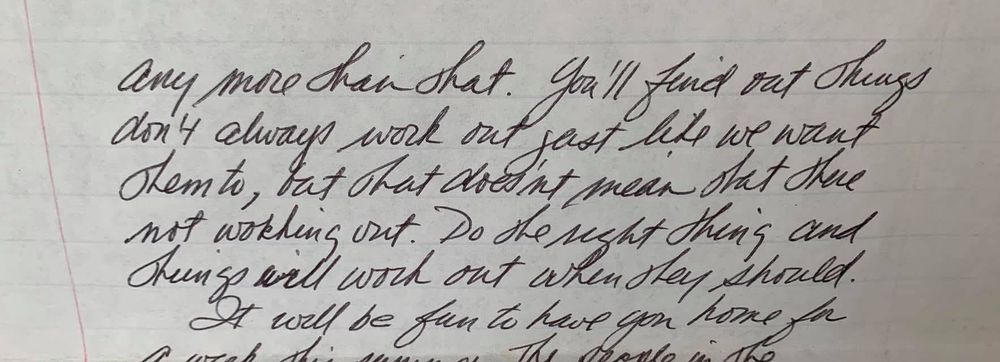 any more than that. You'll find out things
don't always work out just like we want
them to, but that does'nt mean that there
not working out. Do the right thing and
things will work out when they should.
It will be fun to have you home for
a week this The people in the